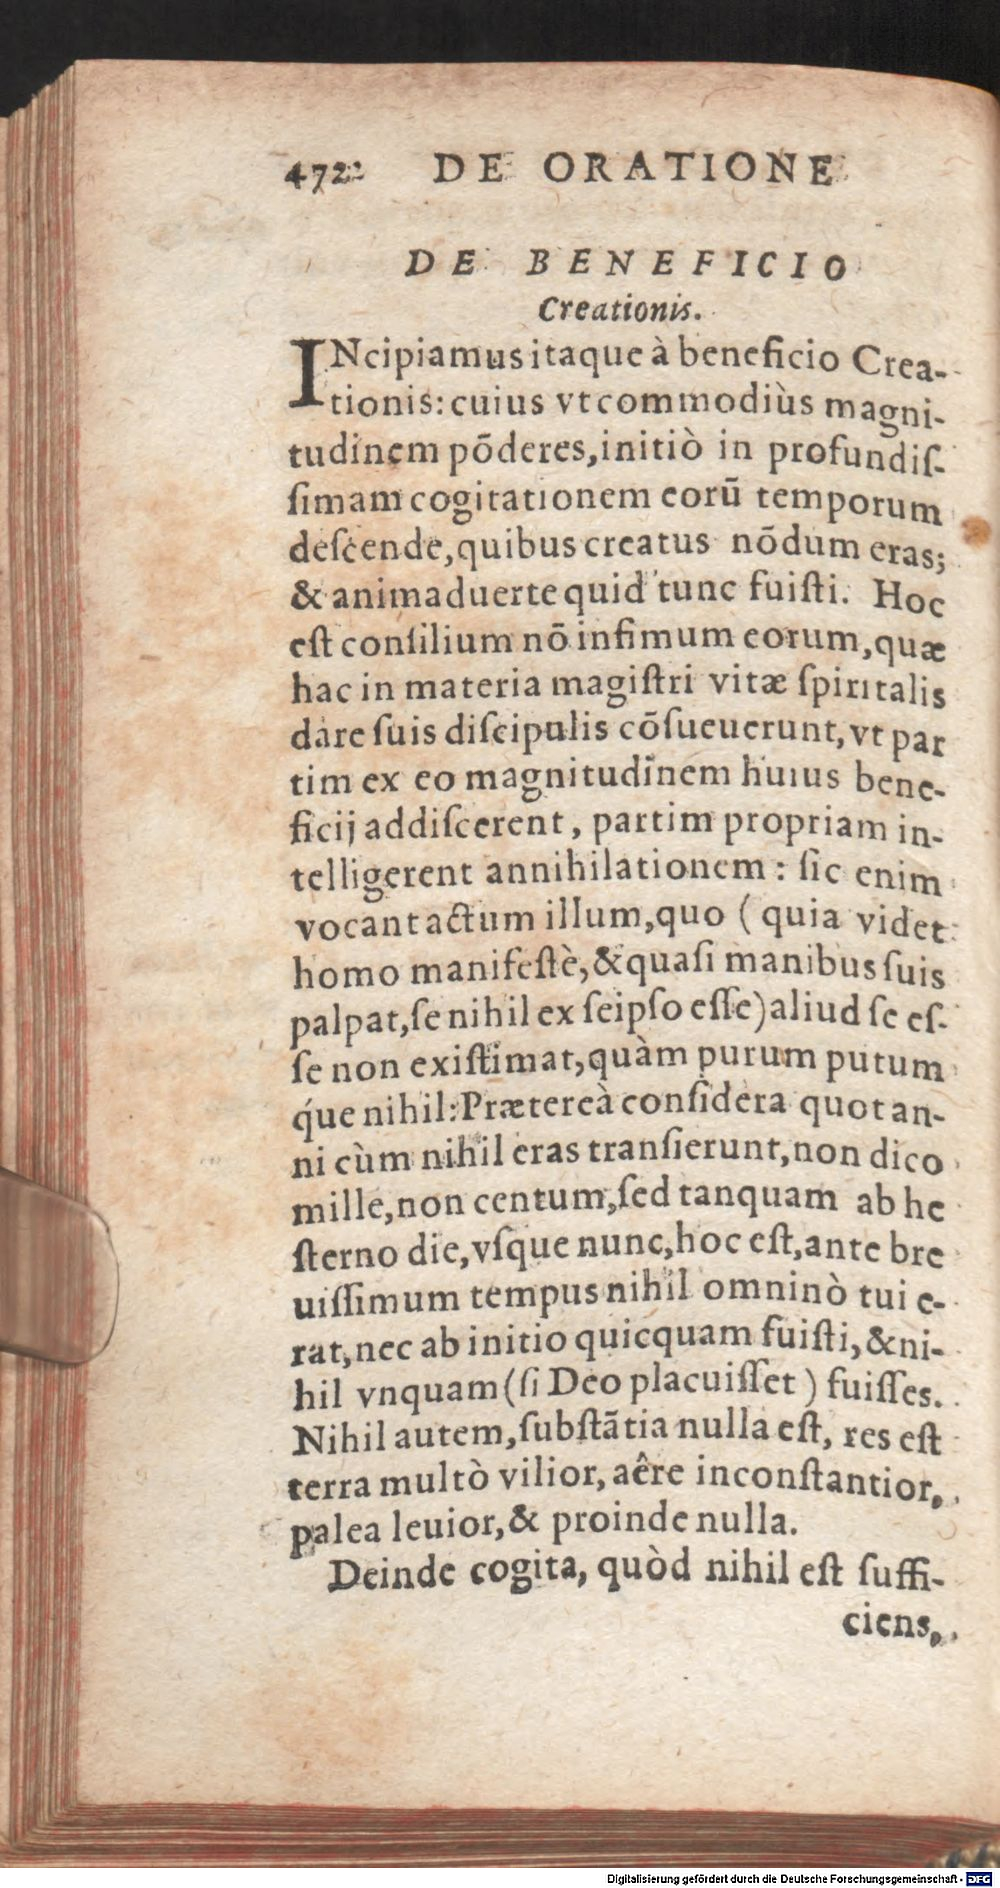 472 DE ORATIONE
DE BENEFICIO
Creationis.
INcipiamus itaque à beneficio Crea-
tionis: cuius vt commodiùs magni-
tudinem põderes, initiò in profundiſ-
ſimam cogitationem eorũ temporum
deſcende, quibus creatus nõdum eras;
& animaduerte quid tunc fuiſti. Hoc
eſt conſilium nõ infimum eorum, quæ
hac in materia magiſtri vitæ ſpiritalis
dare ſuis diſcipulis cõſueuerunt, vt par
tim ex eo magnitudinem huius bene-
ficij addiſcerent, partim propriam in-
telligerent annihilationem: ſic enim
vocant actum illum, quo (quia videt
homo manifeſtè, & quaſi manibus ſuis
palpat, ſe nihil ex ſeipſo eſſe) aliud ſe eſ-
ſe non exiſtimat, quàm purum putum
q́ue nihil: Prætereà conſidera quot an-
ni cùm nihil eras tranſierunt, non dico
mille, non centum, ſed tanquam ab he
ſterno die, vſque nunc, hoc eſt, ante bre
uiſſimum tempus nihil omninò tui e-
rat, nec ab initio quicquam fuiſti, & ni-
hil vnquam (ſi Deo placuiſſet) fuiſſes.
Nihil autem, ſubſtãtia nulla eſt, res eſt
terra multò vilior, aêre inconſtantior,
palea leuior, & proinde nulla.
Deinde cogita, quòd nihil eſt ſuffi-
ciens,
Digitalisierung gefördert durch die Deutsche Forschungsgemeinschaft - DFG